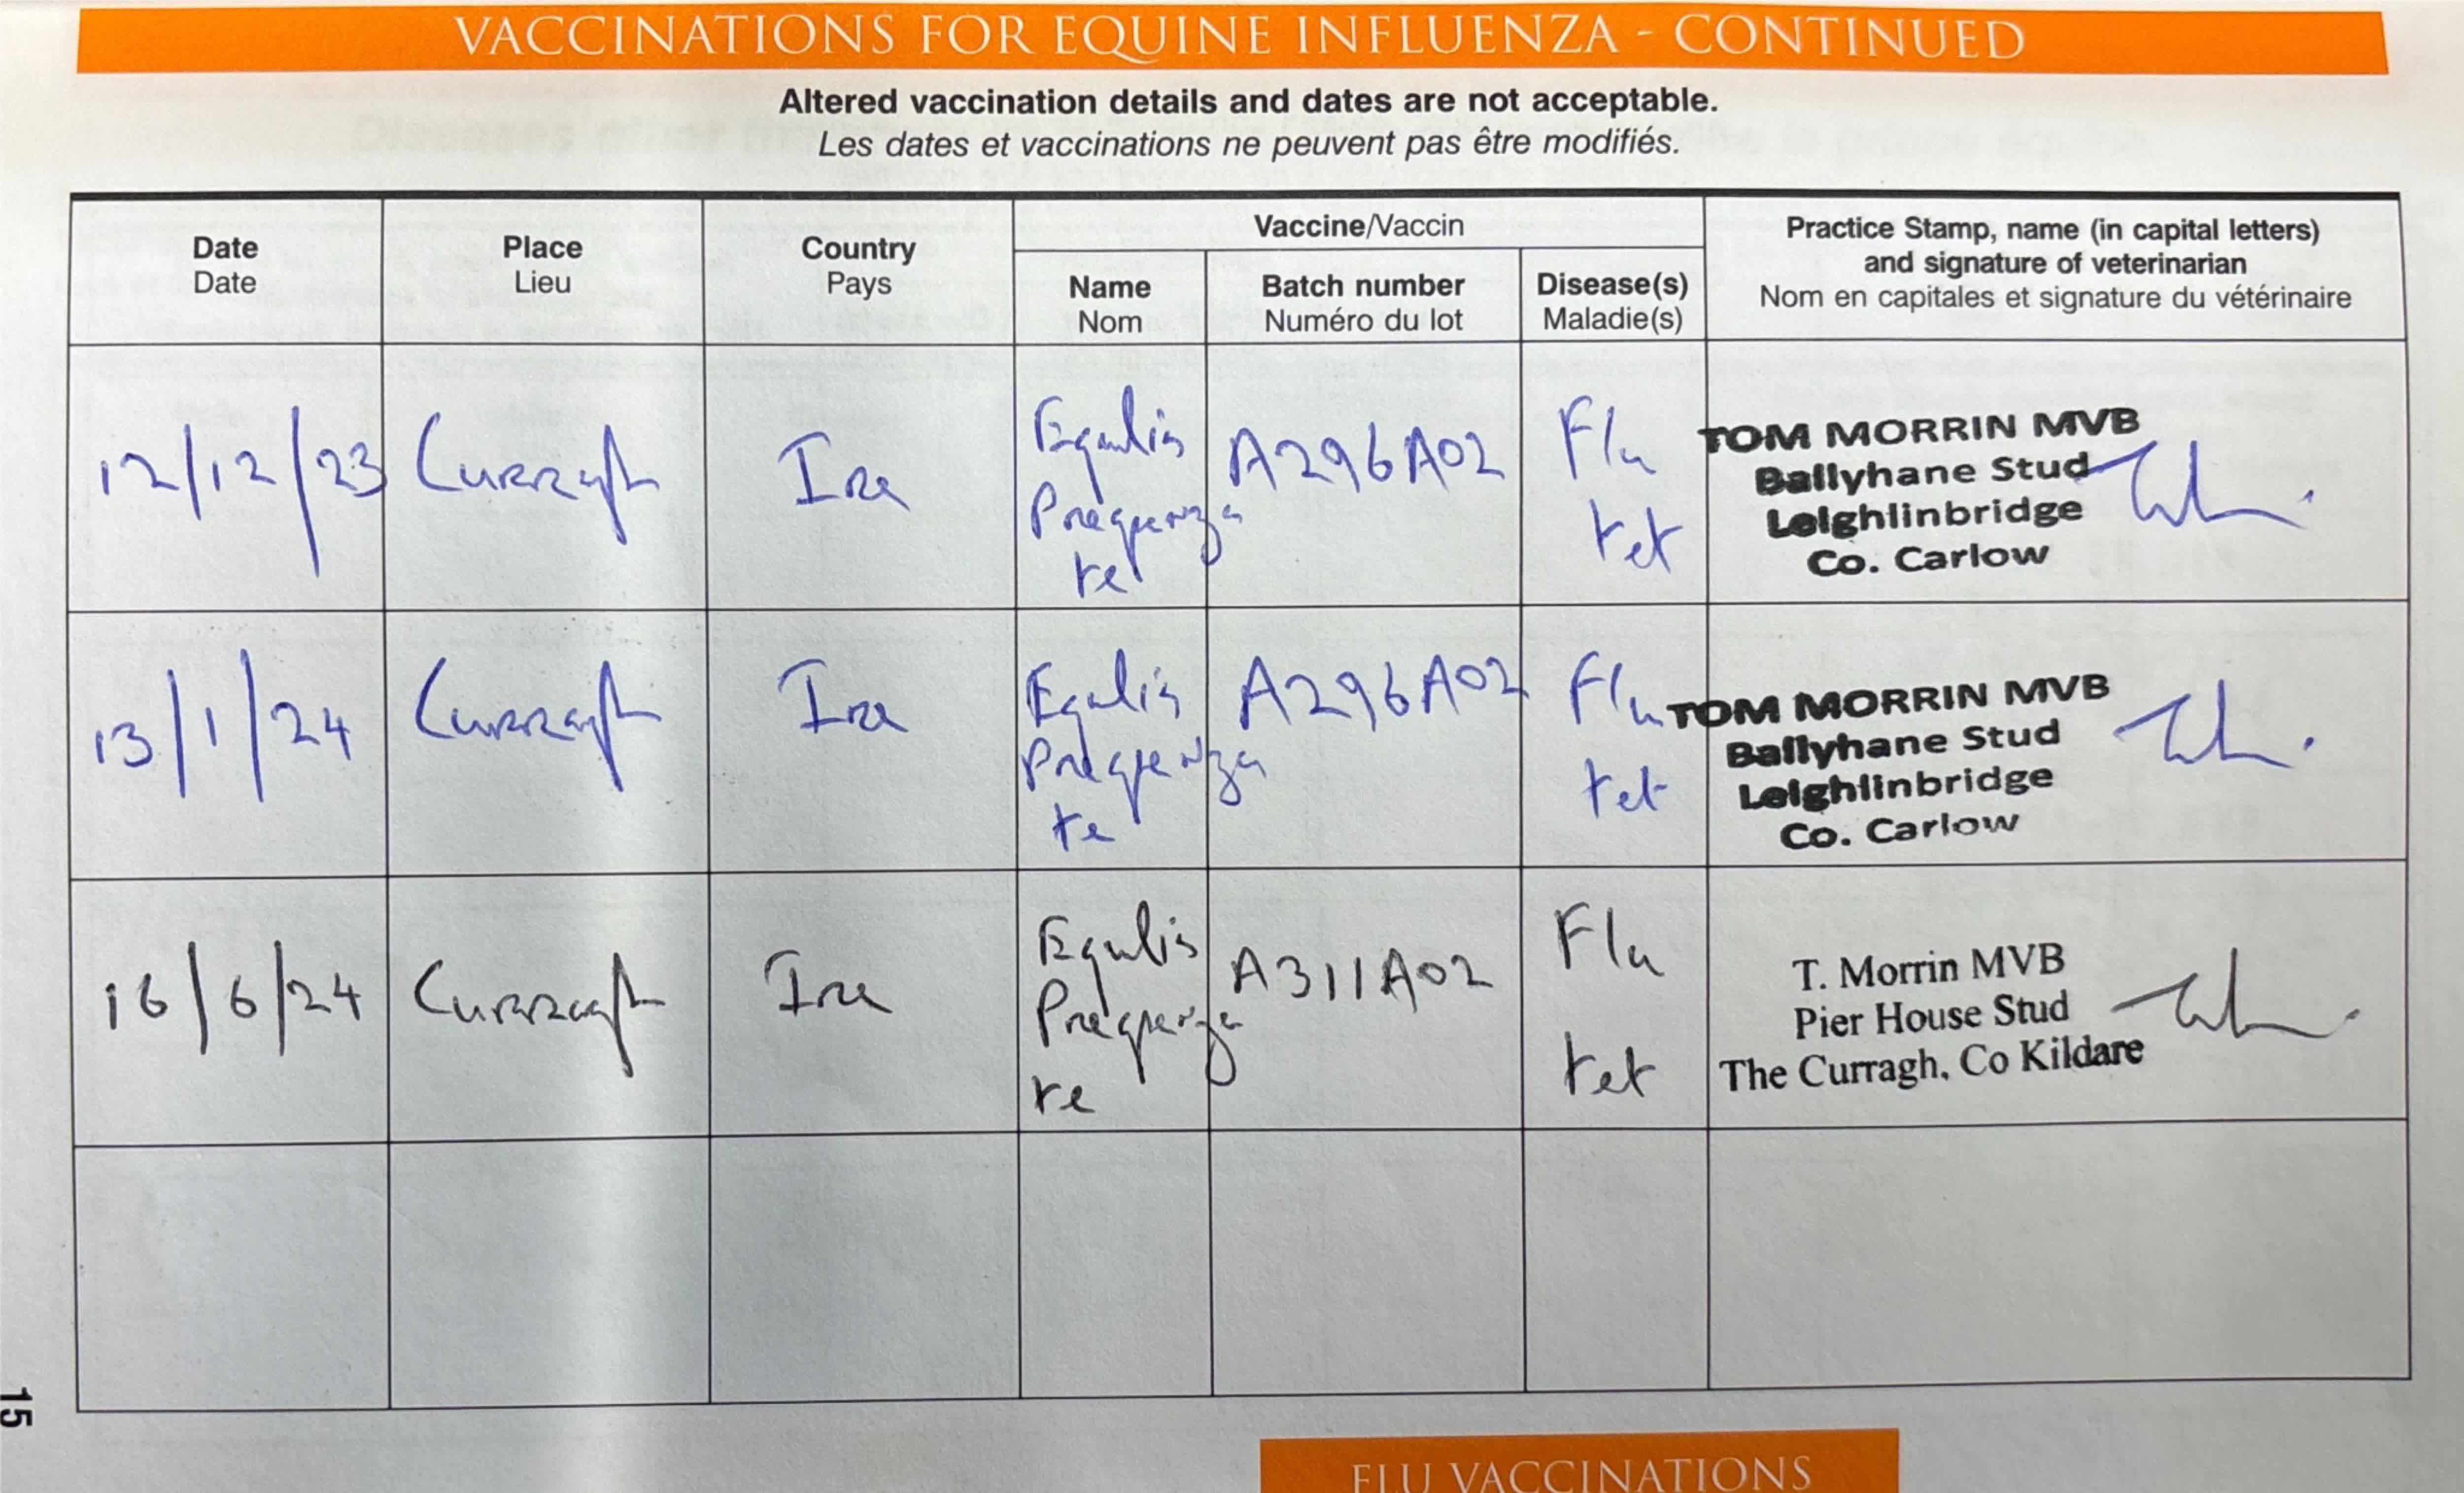 VACCINATIONS FOR EQUINE INFLUENZA - CONTINUED
Altered vaccination details and dates are not acceptable.
Les dates et vaccinations ne peuvent pas être modifiés.
Date
Date
Place
Lieu
Country
Pays
Vaccine/Vaccin
Name
Nom
Batch number
Numéro du lot
Disease(s)
Maladie(s)
Practice Stamp, name (in capital letters)
and signature of veterinarian
Nom en capitales et signature du vétérinaire
12/12/23
Curragh
Ire
Equilis
Prequenza
te
A296A02
Flu
tet
TOM MORRIN MVB
Ballyhane Stud
Leighlinbridge
Co. Carlow
13/1/24
Curragh
Ire
Equilis
Prequenza
te
A296A02
Flu
tet
TOM MORRIN MVB
Ballyhane Stud
Leighlinbridge
Co. Carlow
16/6/24
Curragh
Ire
Equilis
Prequenza
te
A311A02
Flu
tet
T. Morrin MVB
Pier House Stud
The Curragh, Co Kildare
15
FLU VACCINATIONS